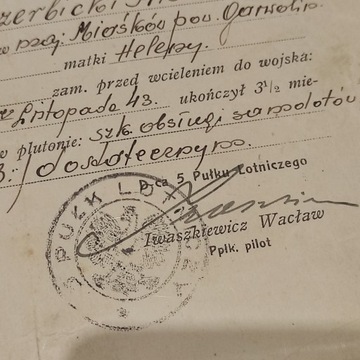 zerbicki
w maj. Miastków pow. Garwolin
matki Heleny.
zam. przed wcieleniem do wojska:
Listopada 43. ukończył 3½ mie-
w plutonie: szk. obsługi samolotów
dostatecznym.
D-ca 5 Pułku Lotniczego
Iwaszkiewicz Wacław
Ppłk. pilot
PUŁK LOT